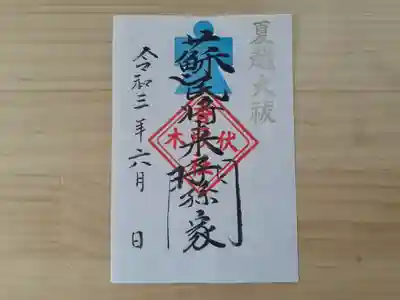 夏越大祓
蘇民將来子孫家門
令和三年六月 日
伏
木